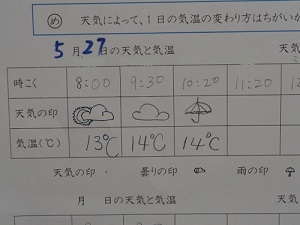 め 天気によって、1日の気温の変わり方はちがいが
5月27日の天気と気温 天気
時こく 8:00 9:30 10:20 11:20 12
天気の印
気温(℃) 13℃ 14℃ 14℃
天気の印・ 曇りの印 雨の印
月 日の天気と気温 天